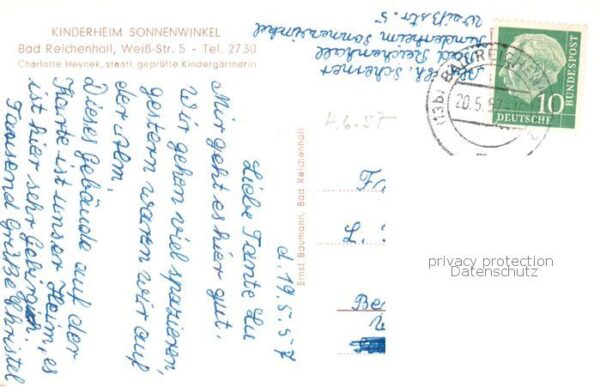 KINDERHEIM SONNENWINKEL
Bad Reichenhall, Weiß-Str. 5 - Tel. 2730
Charlotte Heynek, staatl. geprüfte Kindergärtnerin
d. 19.5.57
Liebe Tante Lu
Mir geht es hier gut.
Wir gehen viel spazieren,
gestern waren wir auf
der
Dieses Gebäude auf der
Karte ist unser Heim, es
ist hier sehr
Tausend Grüße Christel
Abs. Ch.
Bad Reichenhall
Kinderheim Sonnenwinkel
Weißstr. 5
4.6.57
Ernst Baumann, Bad Reichenhall
(13b) BAD REICHEN
20.5.57
10
DEUTSCHE
BUNDESPOST
Fr
L.
Be
privacy protection
Datenschutz